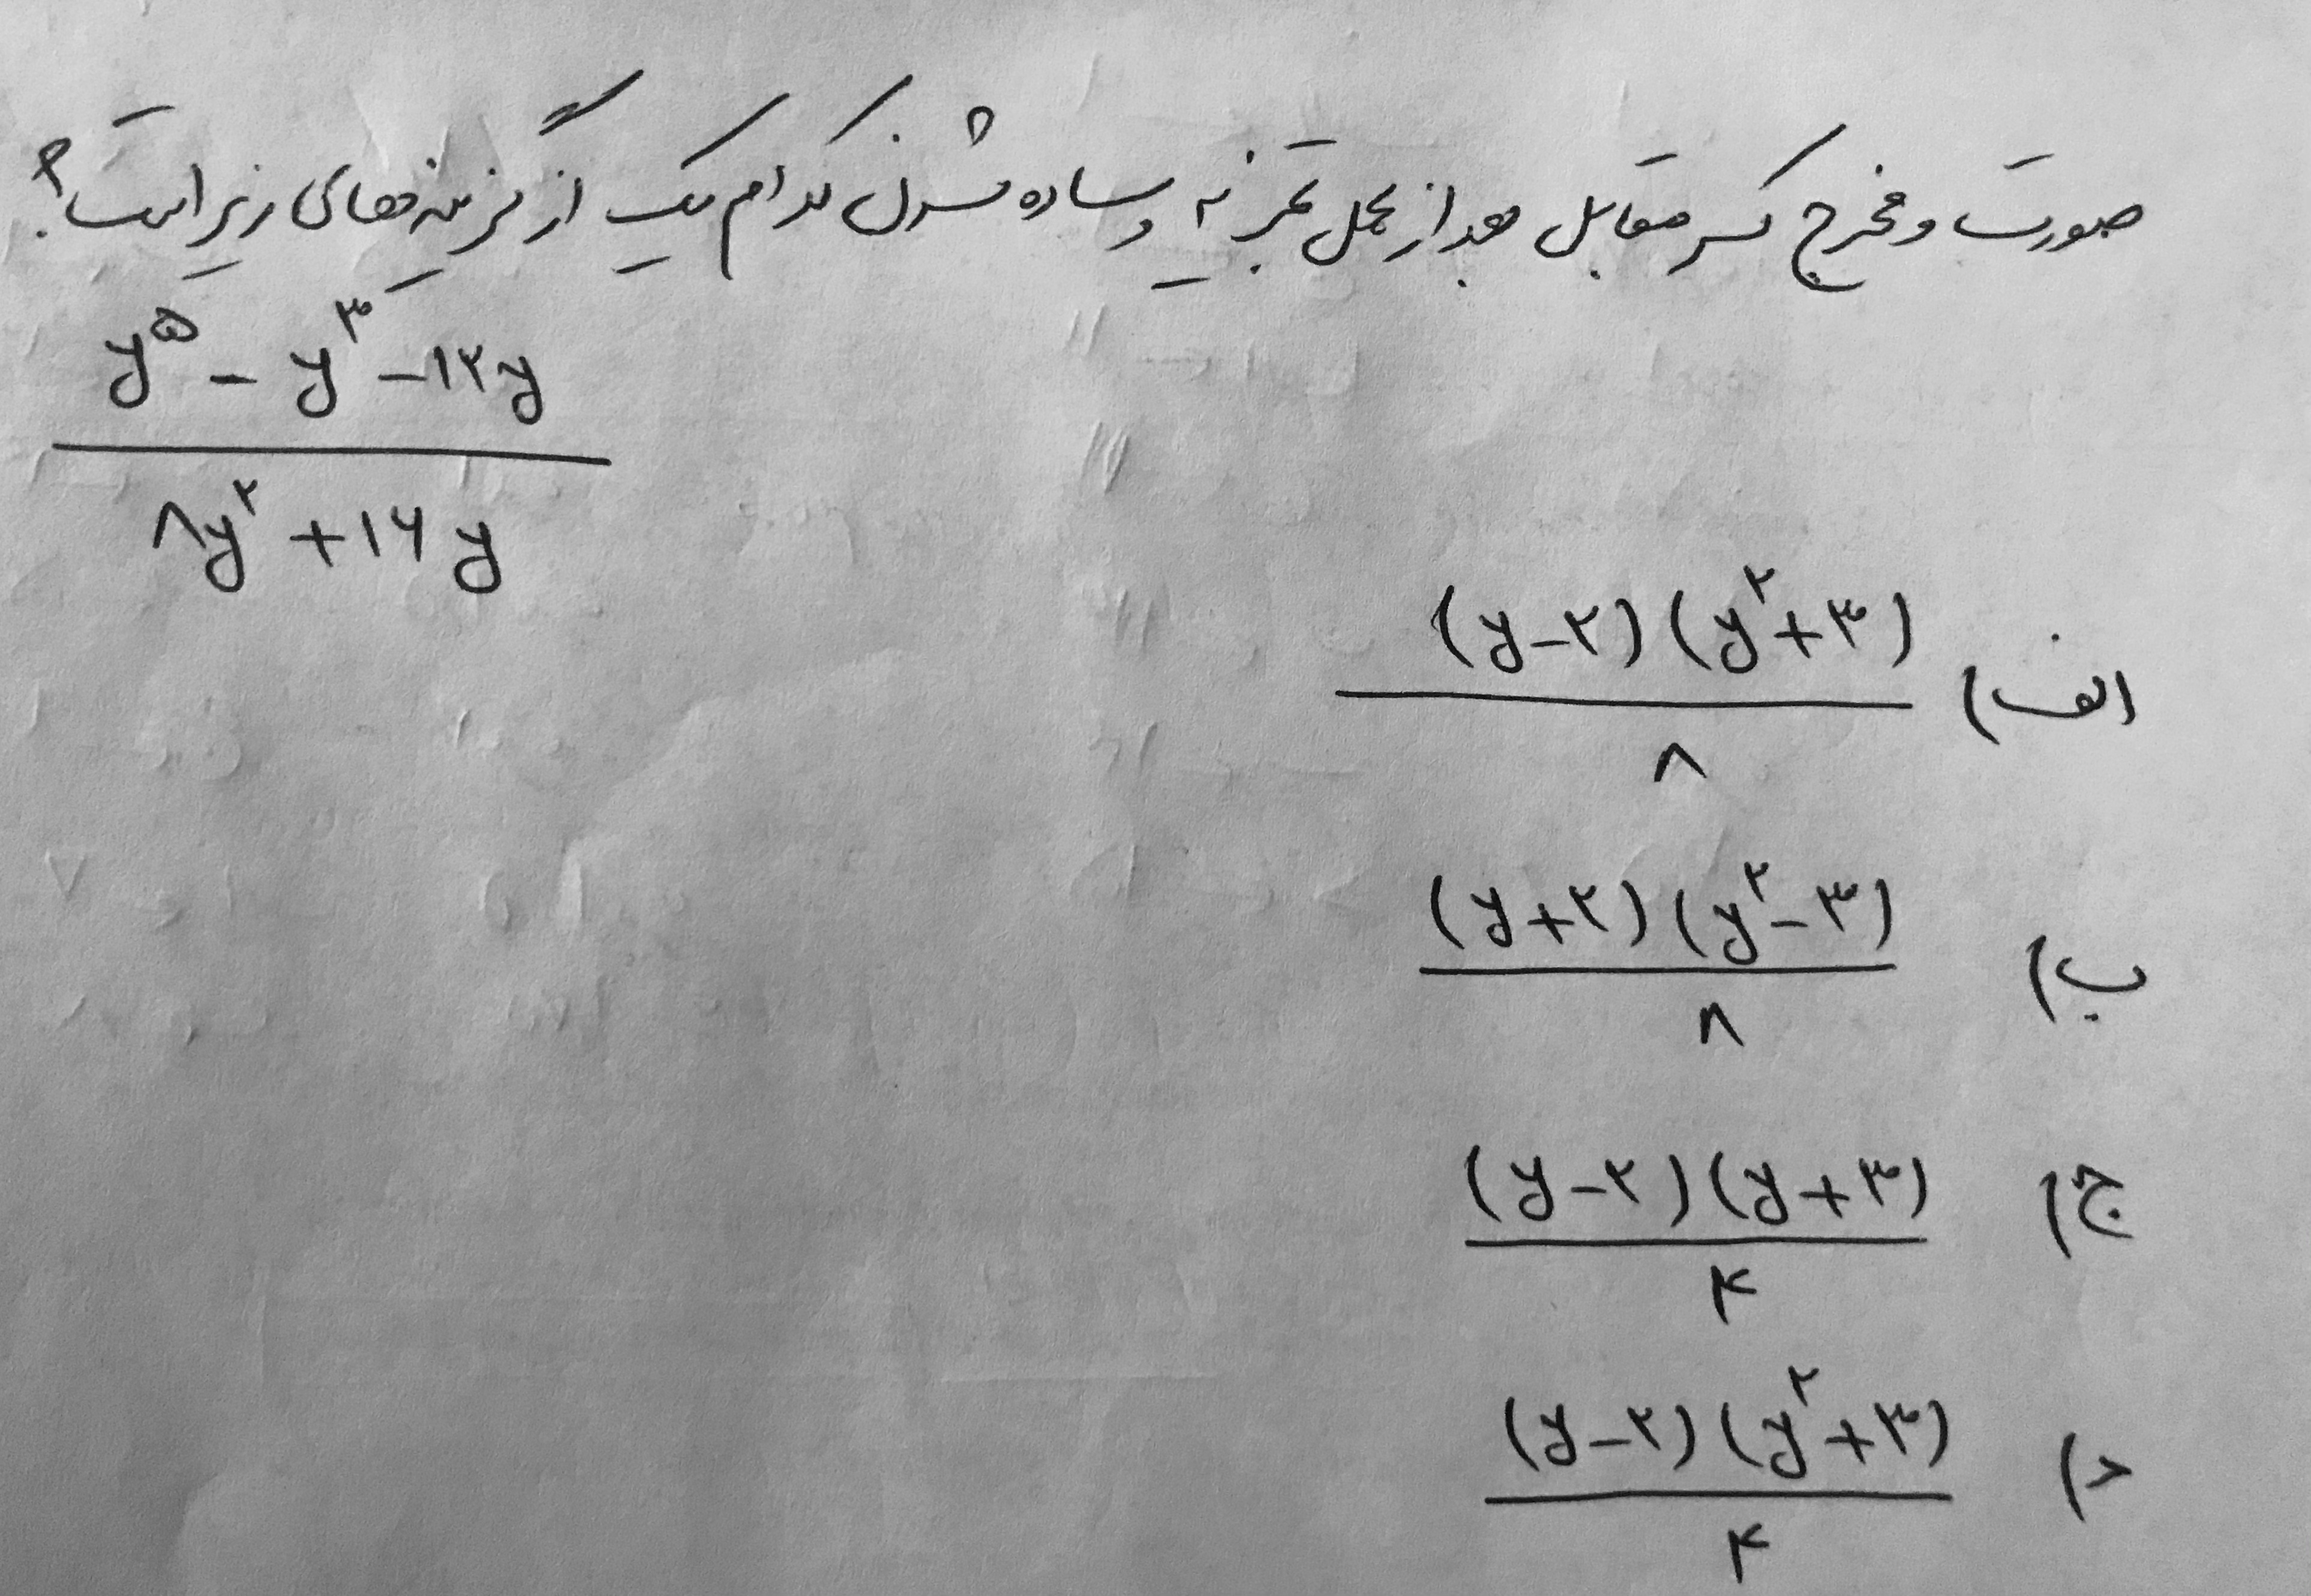 صورت و مخرج کسر مقابل بعد از عمل تجزیه و ساده شدن کدام یک از گزینه های زیر است؟
(y^۵ - y^۳ - ۱۲y) / (۸y^۲ + ۱۶y)
الف) (y-۲)(y^۲+۳) / ۸
ب) (y+۲)(y^۲-۳) / ۸
ج) (y-۲)(y+۳) / ۴
د) (y-۲)(y^۲+۳) / ۴